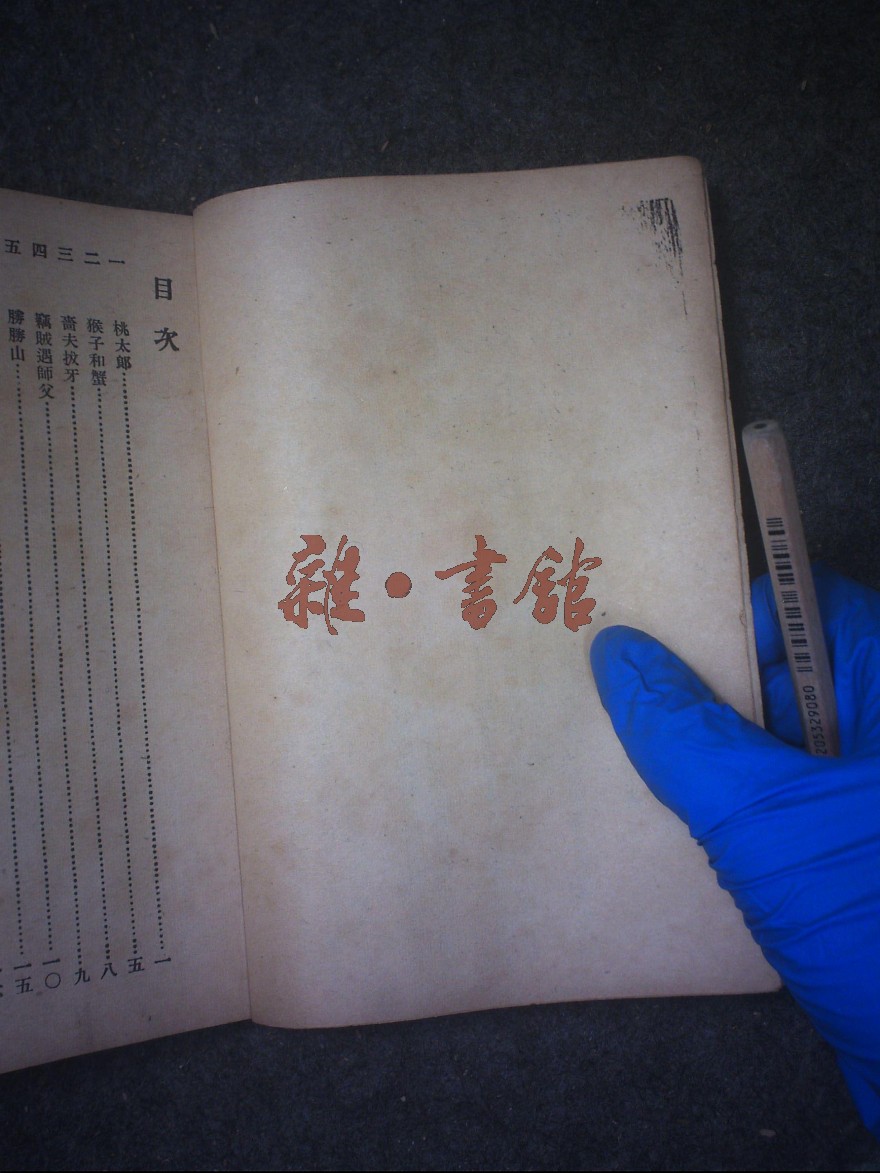 目次
一 桃太郎……一
二 猴子和蟹……五
三 嗇夫拔牙……八
四 竊賊遇師父……九
五 勝勝山……一〇
一五
雜·書館
205329080